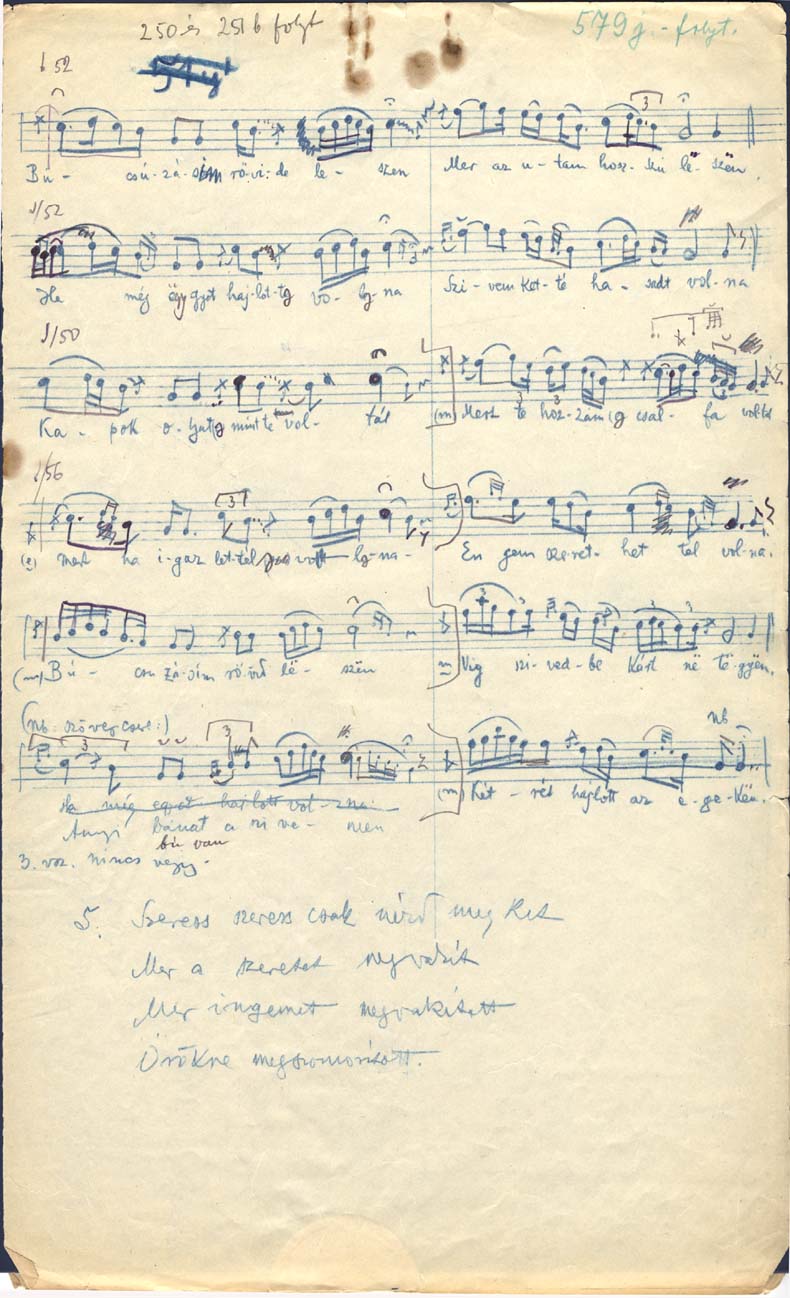 250 és 251 b folyt
579 j. - folyt.
52
Bú - csú-zá-sim rö-vi-de le - szen Mer az u-tam hosz-szu lë-szën.
1/52
Ha még eggyet hajlot-tg vo-lg-na Szi-vem Ket-té ha-sadt vol-na
1/50
Ka-pok o-lyat mint te vol-tál (m) Mert te hoz-zám csal-fa voltál
1/56
(e) mert ha i-gaz let-tél vo lg-na - En gem sze-ret-het tél vol-na.
(m) Bú - csu zá-sim rövid lë-szën m Vig szi-ved-be Kárt në të-gyën.
(nb. szövegcsere:)
nb
Ha még eggyet hajlott vol-na (m) Két-rét hajlott az e-ge-Kën.
Annyi bánat a szi ve-men
bú van
3. vsz. nincs végig.
5. Szeress szeress csak nézd meg kit
Mer a szeretet megvakít
Mer ingemet megvakított
Örökre megszomorított.